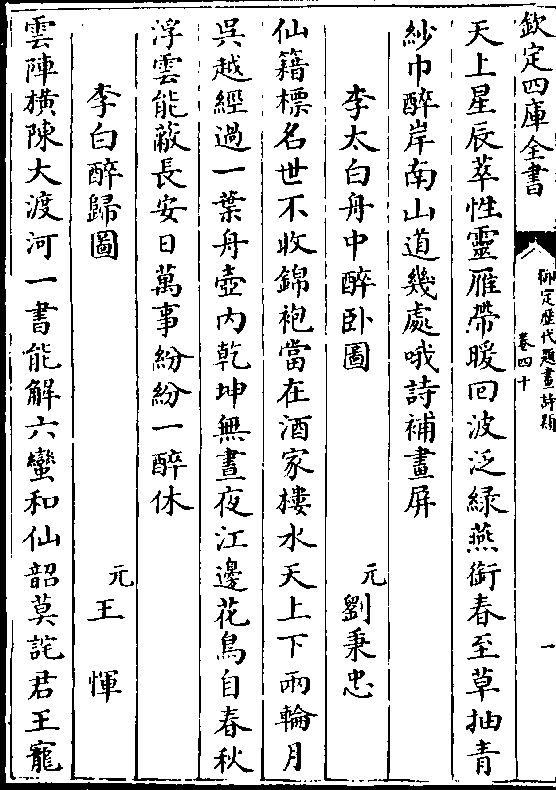 欽定四庫全書
御定歴代題畫詩類
卷四十
一
天上星辰萃性靈雁帶暖回波泛緑燕銜春至草抽青
紗巾醉岸南山道幾處哦詩補畫屏
李太白舟中醉卧圖 元劉秉忠
仙籍標名世不收錦袍當在酒家樓水天上下兩輪月
吳越經過一葉舟壺内乾坤無晝夜江邊花鳥自春秋
浮雲能蔽長安日萬事紛紛一醉休
李白醉歸圖 元王惲
雲陣横陳大渡河一書能解六蠻和仙韶莫詫君王寵